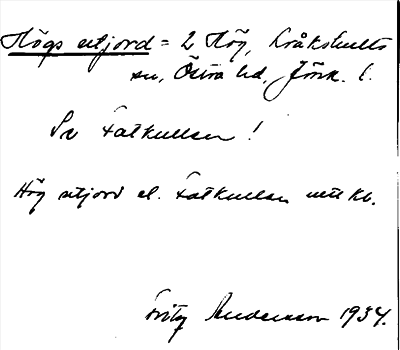 Högs utjord = 2 Hög, Kråkshults
sn, Östra hd, Jönk. l.
Se Fatkullen!
Hög utjord el. Fatkullen utt kl.
Fritz Andersson 1934.